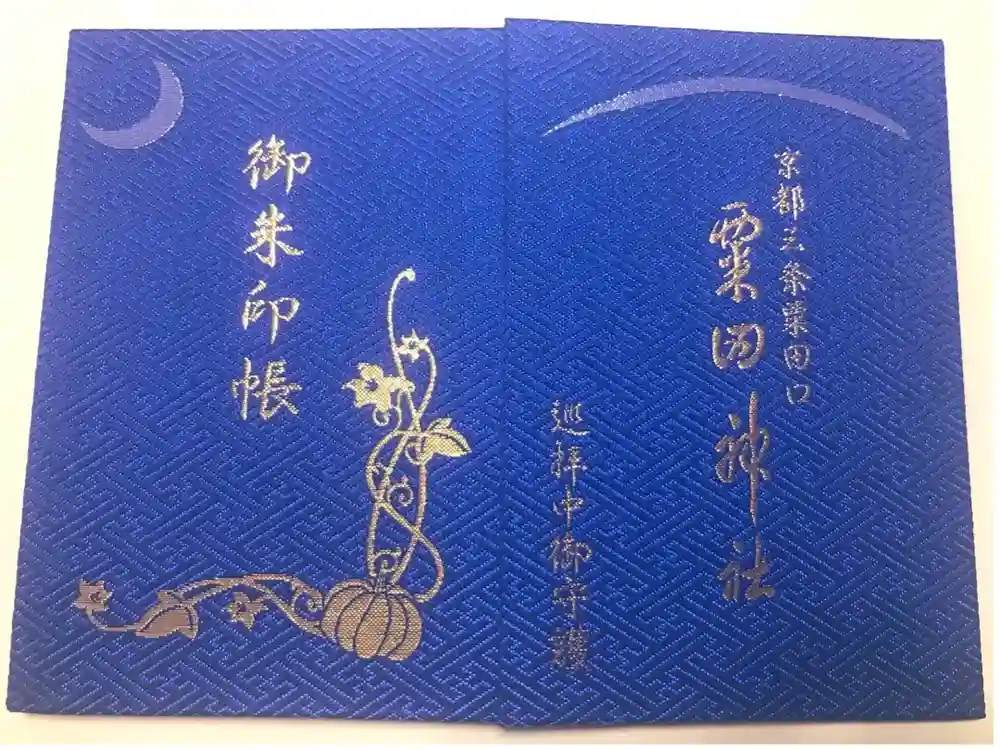 京都三条粟田口
粟田神社
巡拝中御守護
御朱印帳